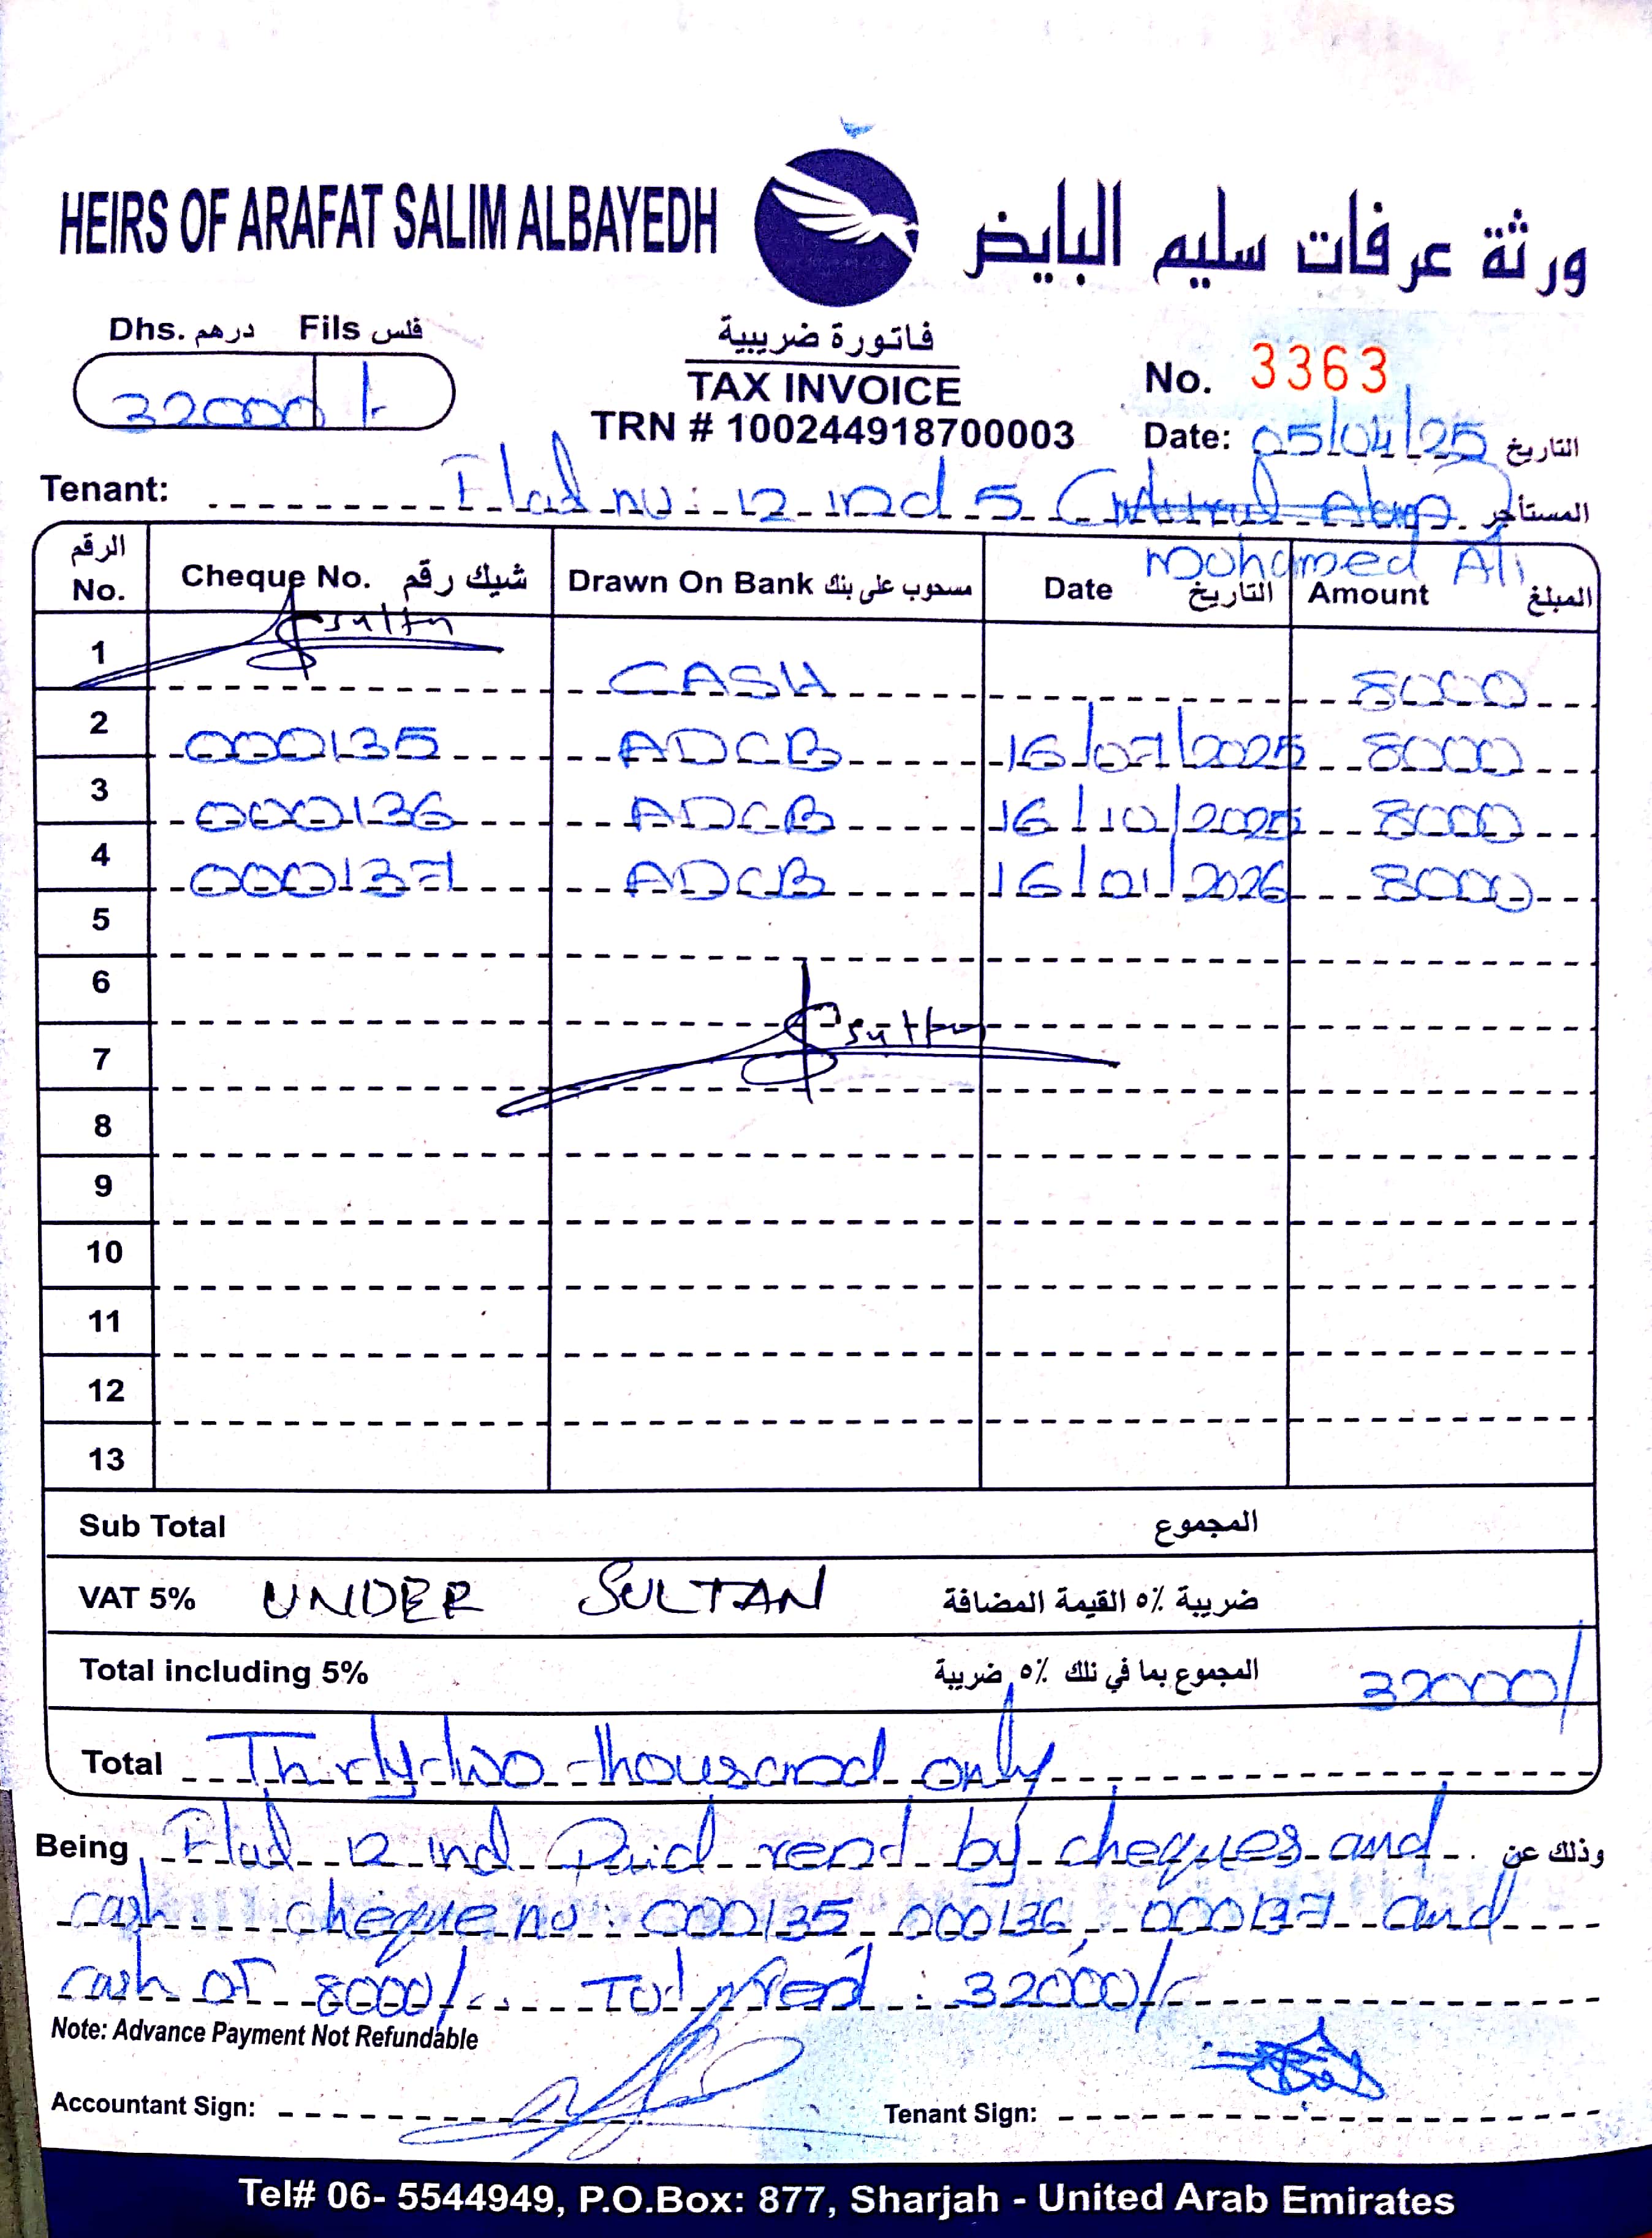 HEIRS OF ARAFAT SALIM ALBAYEDH ورثة عرفات سليم البايض
Dhs. درهم Fils فلس
32000 /-
فاتورة ضريبية
TAX INVOICE
TRN # 100244918700003
No. 3363
Date: 05/04/25 التاريخ
Tenant: Flad no: 12 ind 5 المستأجر
Mohamed Ali
الرقم No. Cheque No. شيك رقم Drawn On Bank مسحوب على بنك Date التاريخ Amount المبلغ
1 CASH 8000
2 000135 ADCB 16/07/2025 8000
3 000136 ADCB 16/10/2025 8000
4 000137 ADCB 16/01/2026 8000
5
6
7
8
9
10
11
12
13
Sub Total المجموع
VAT 5% UNDER SULTAN ضريبة ٥٪ القيمة المضافة
Total including 5% المجموع بما في ذلك ٥٪ ضريبة 32000/
Total Thirty two thousand only
Being Flad 12 ind Paid rend by cheques and وذلك عن
cash cheque no: 000135, 000136, 000137 and
cash of 8000/- : 32000/-
Note: Advance Payment Not Refundable
Accountant Sign: Tenant Sign:
Tel# 06- 5544949, P.O.Box: 877, Sharjah - United Arab Emirates